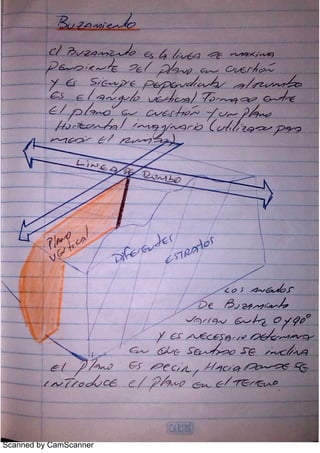 Buzamiento
El Buzamiento es la linea de maxima
pendiente del plano en cuestión
y es siempre perpendicular al rumbo
es el angulo vertical Tomado entre
El plano en cuestión y un plano
Horizontal imaginario (utilizado para
medir el rumbo)
Linea de Rumbo
Plano
vertical
Diferentes
estratos
Los angulos
De Buzamiento
varian entre 0 y 90°
y es necesario Determinar
en que sentido se inclina
el plano es decir, Hacia donde se
introduce el plano en el Terreno
CARIBE
Scanned by CamScanner